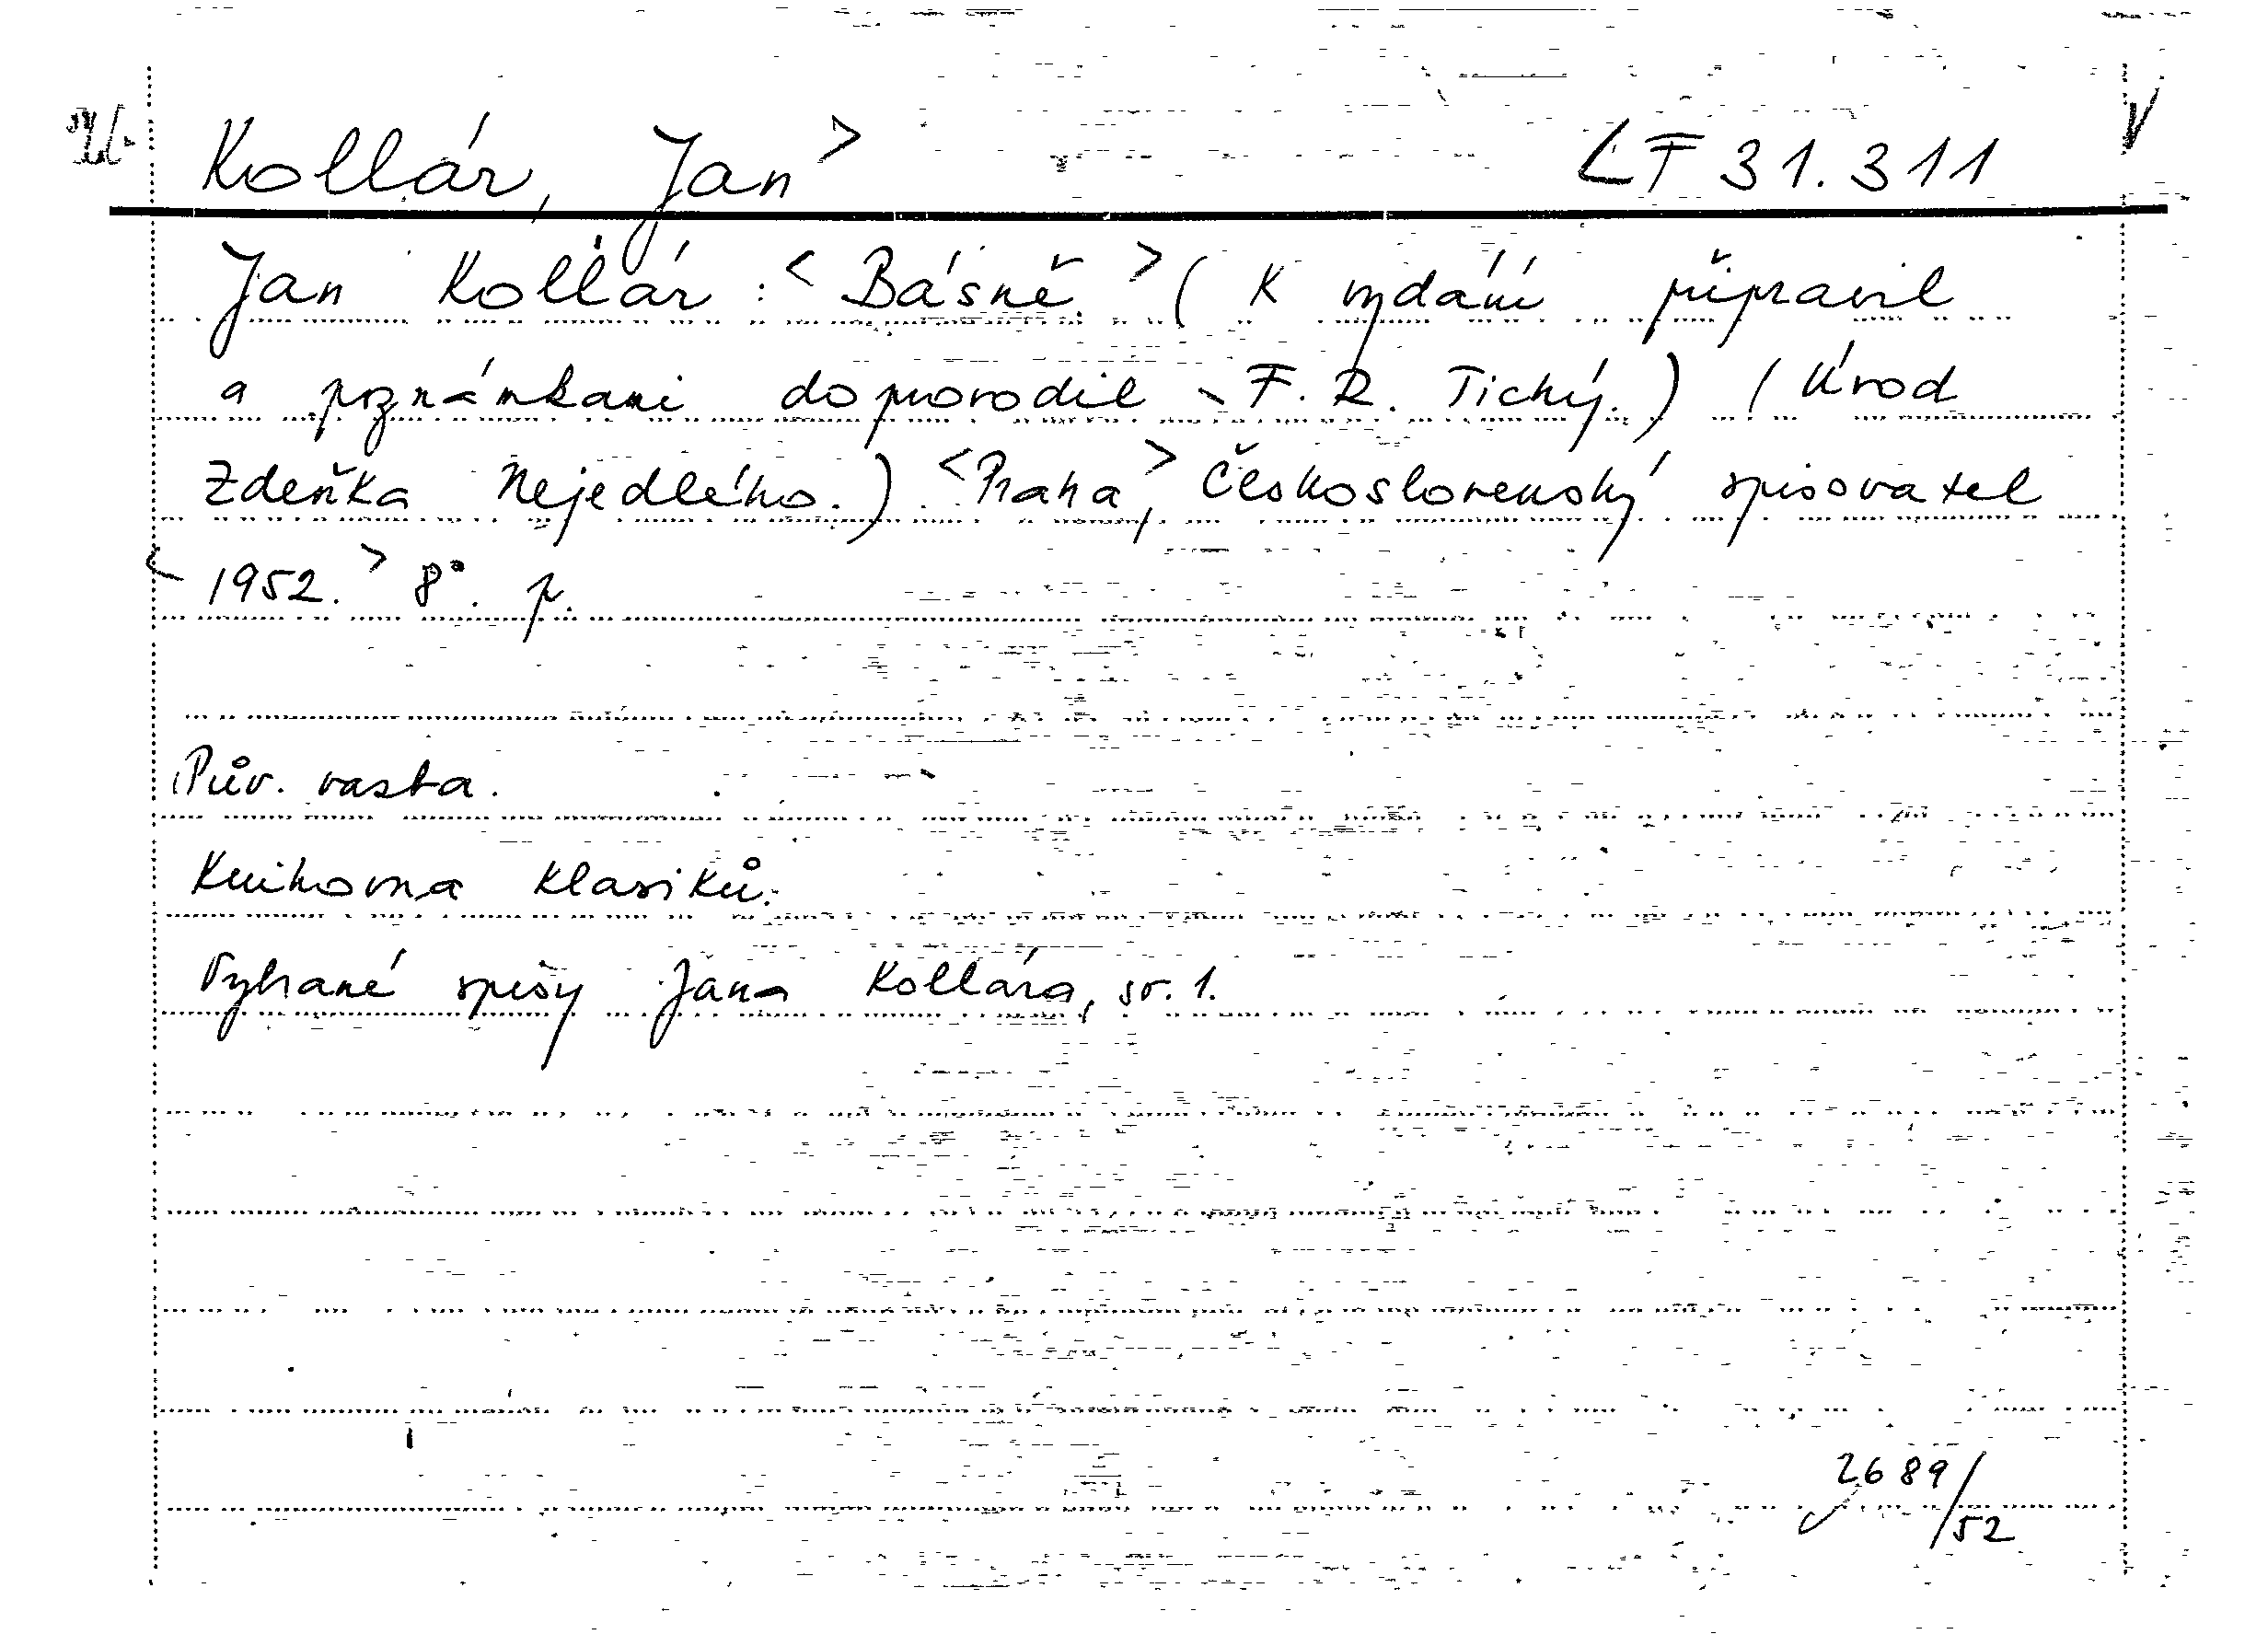 Kollár, Jan > LF 31.311 V
Jan Kollár : < Básně. > ( K vydání připravil
a poznámkami doprovodil F. R. Tichý. ) ( Úvod
Zdeňka Nejedlého. ) < Praha, > Československý spisovatel
< 1952. > 8°. p.
Pův. vazba.
Knihovna klasiků.
Vybrané spisy Jana Kollára, sv. 1.
2689/52